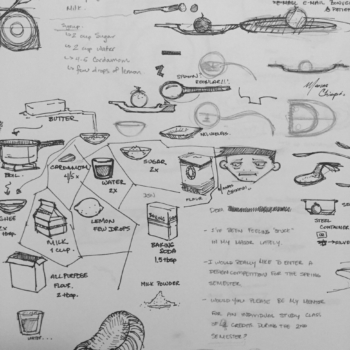 MILK.
Syrup
1 cup sugar
1 cup water
4-5 cardamoms
few drops of lemon
BUTTER
BOIL
CARDAMOM
4/5 x
WATER
2x
SUGAR
2x
FLOUR
GHEE
MILK
1 CUP.
LEMON
FEW DROPS
BAKING
SODA
1.5 tbsp
ALL PURPOSE
FLOUR.
2 tbsp.
MILK POWDER
STEEL
CONTAINER
Dear
- I'VE BEEN FEELING "STUCK"
IN MY MAJOR LATELY.
- I WOULD REALLY LIKE TO ENTER A
DESIGN COMPETITION FOR THE SPRING
SEMESTER.
- WOULD YOU PLEASE BE MY MENTOR
FOR AN INDIVIDUAL STUDY CLASS
OF CREDITS DURING THE 2ND
SEMESTER?